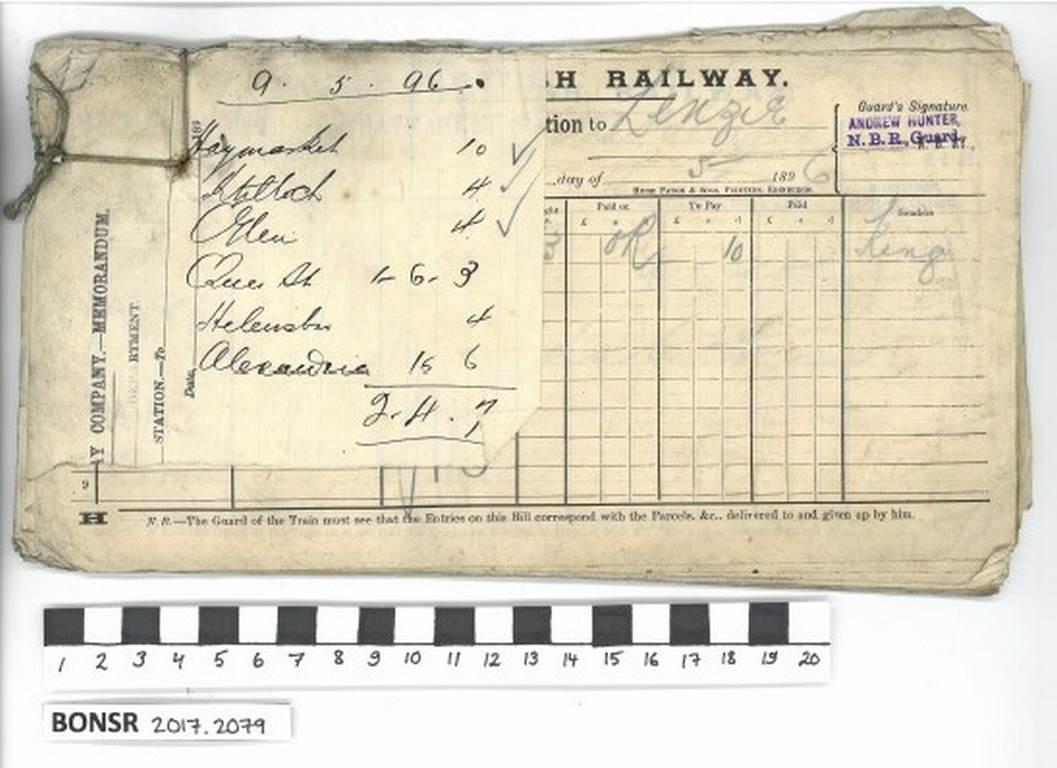 9. 5. 96.
Haymarket 10
4
Glen 4
Queen St 1-6-3
Helensbu 4
Alexandria 15 6
2.4.7
Y COMPANY.—MEMORANDUM.
DEPARTMENT.
STATION.—To
Date,
189
SH RAILWAY.
tion to Lenzie
day of 5 1896
HUGH PATON & SONS, PRINTERS, EDINBURGH.
Guard's Signature.
ANDREW HUNTER,
N.B.R. Guard.
Paid on To Pay Paid
£ s £ s d £ s d
3 10 King
9
H N.B.—The Guard of the Train must see that the Entries on this Bill correspond with the Parcels, &c., delivered to and given up by him.
1 2 3 4 5 6 7 8 9 10 11 12 13 14 15 16 17 18 19 20
BONSR 2017.2079